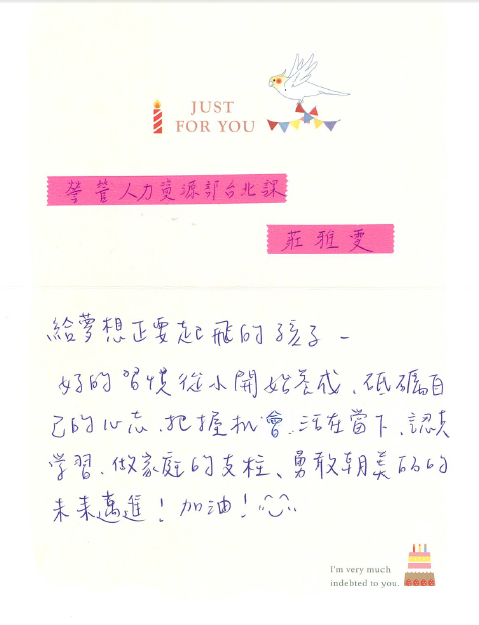 JUST
FOR YOU
營管人力資源部台北課
莊雅雯
給夢想正要起飛的孩子—
好的習慣從小開始養成、砥礪自
己的心志、把握机會、活在當下、認真
学習、做家庭的支柱、勇敢朝美丽的
未来邁進！加油！
I'm very much
indebted to you.